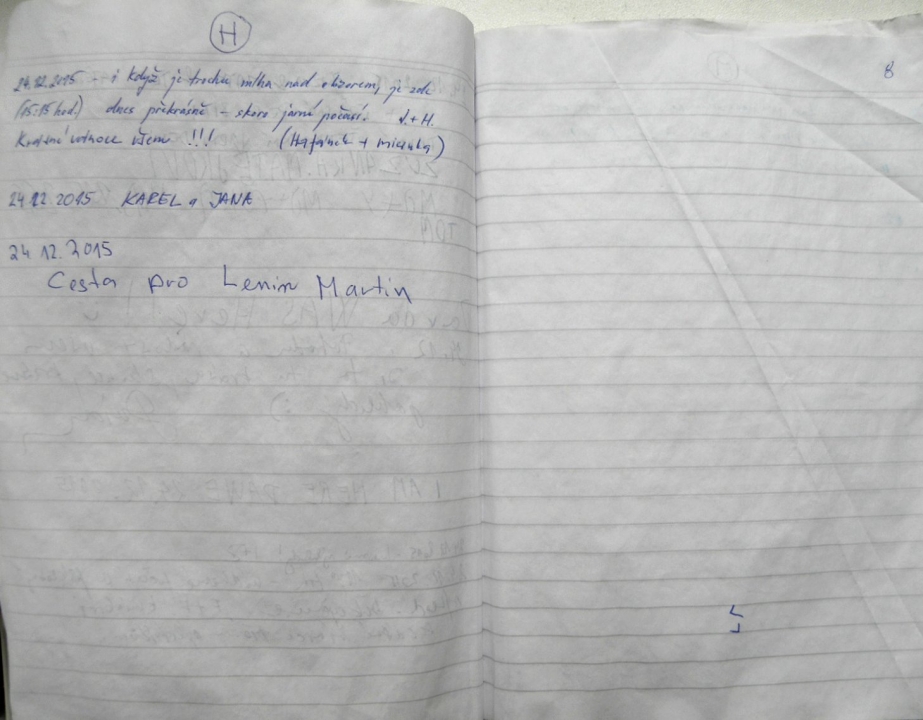 H
24.12.2015 - i když je trochu mlha nad obzorem, je zde
(15:15 hod.) dnes překrásně - skoro jarní počasí. J. + H.
Krásné vánoce všem !!!
24.12.2015 KAREL a JANA
24.12.2015
Cesta pro Lenin Martin
8